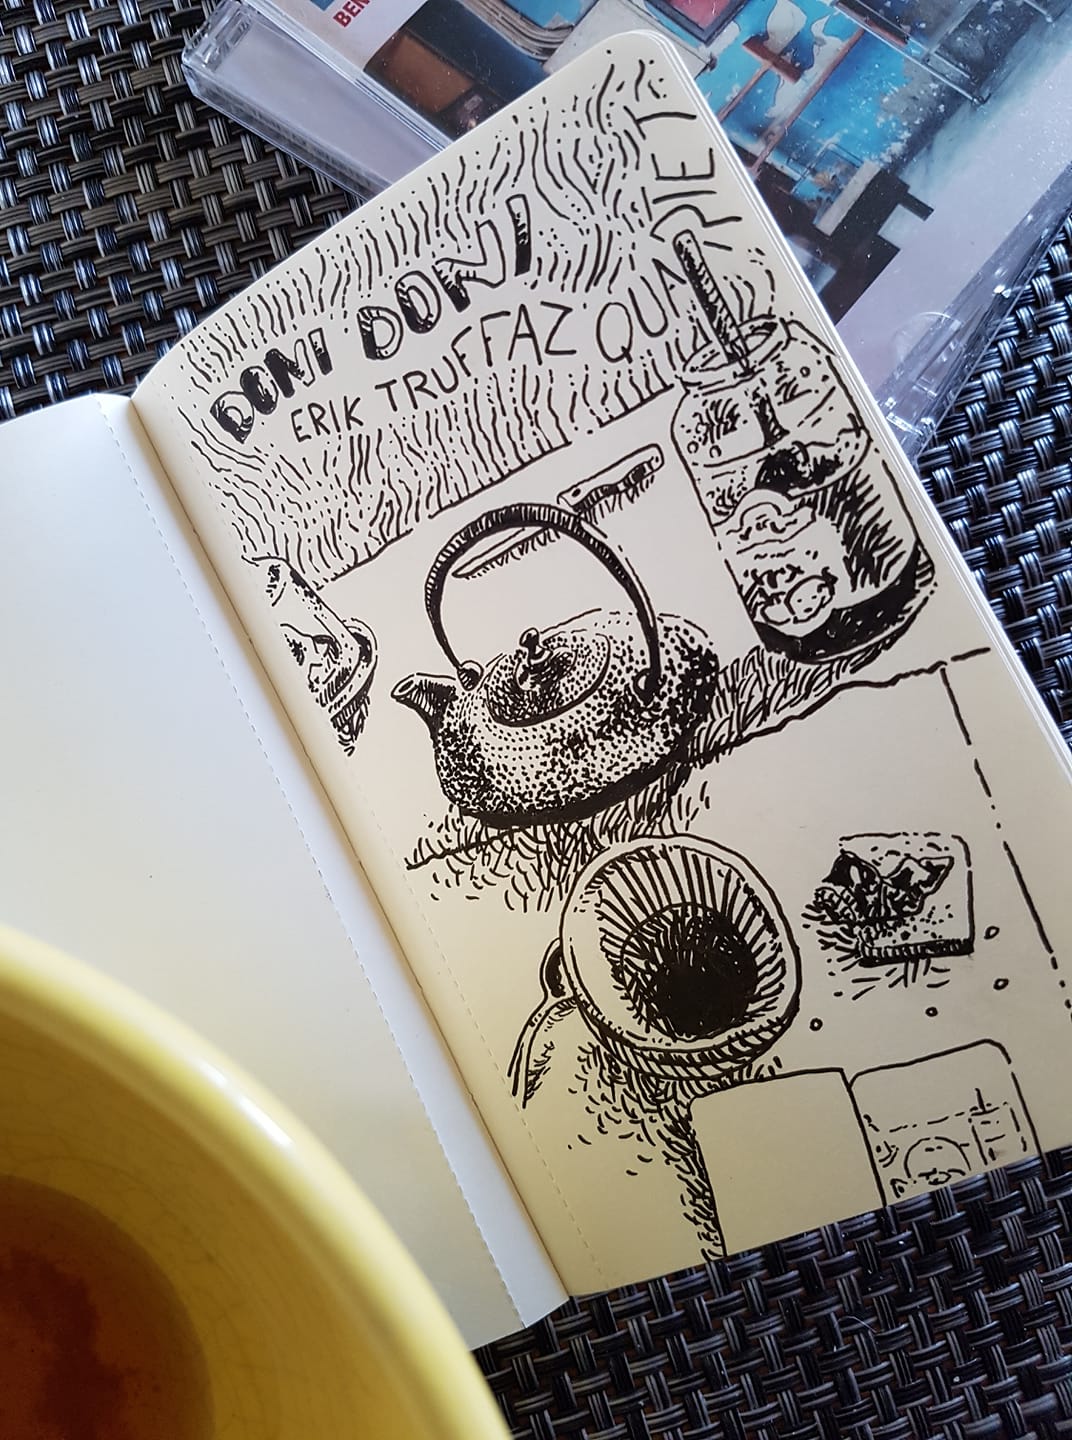 BEN
DONI DONI
ERIK TRUFFAZ QUARTET